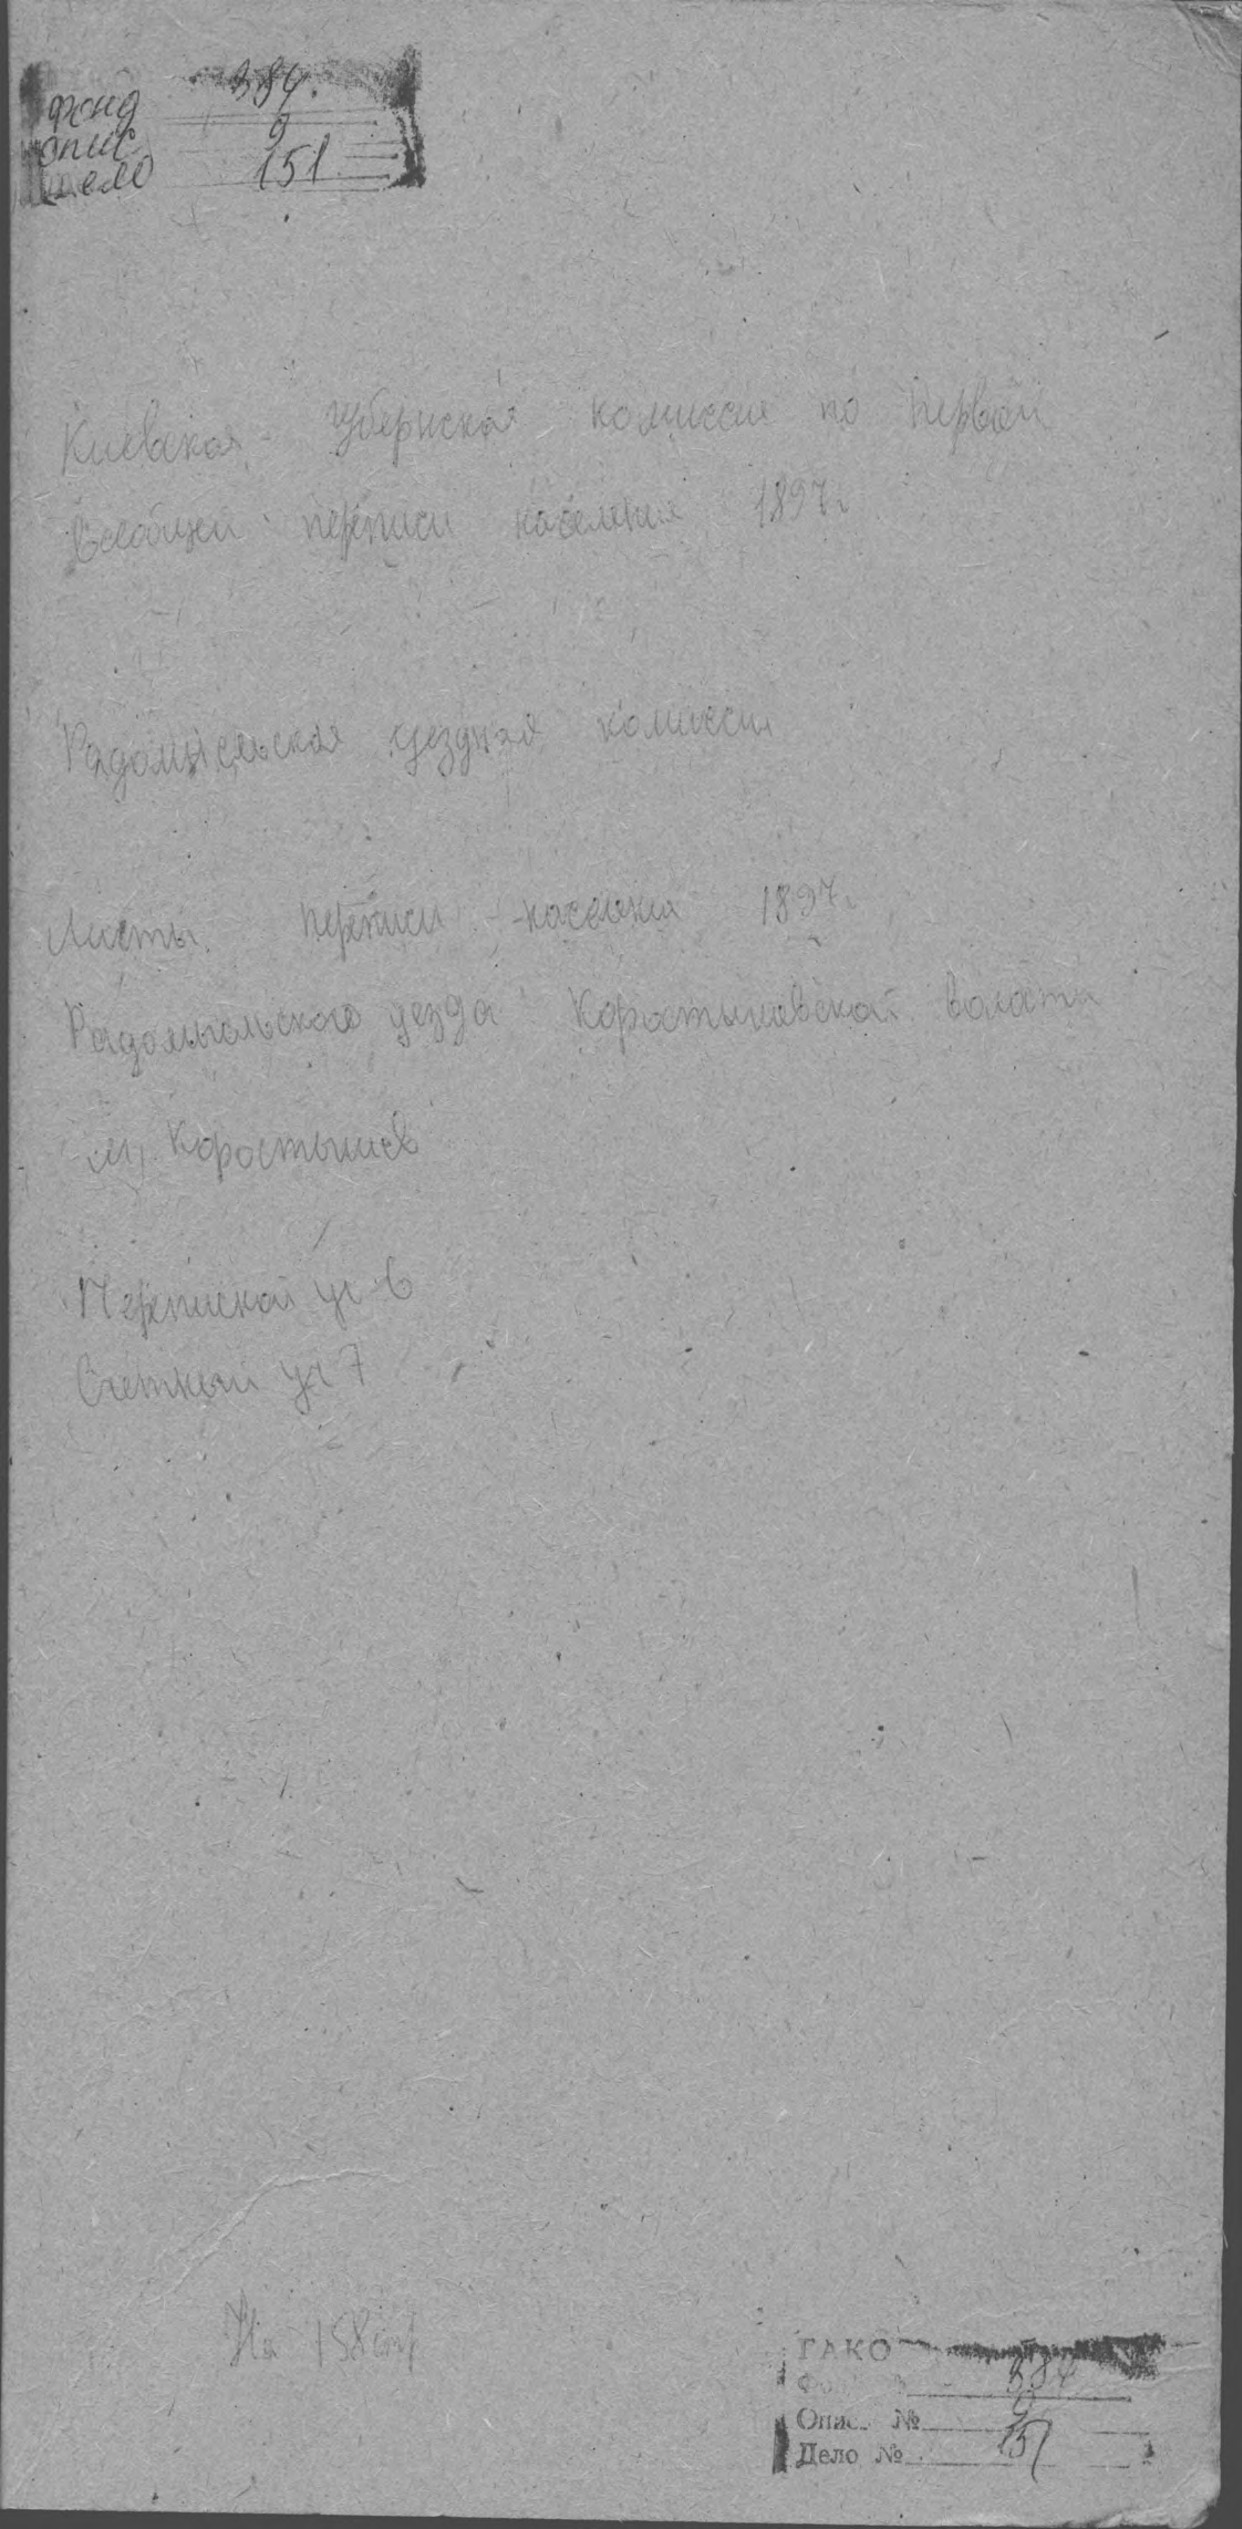 фонд 384.
опис 9
дело 151
Киевская губернская комиссия по первой
всеобщей переписи населения 1897г
Радомысльская уездная комиссия
Листы переписи населения 1897г
Радомысльского уезда Коростышевской волости
м. Коростышев
Переписной уч 6
Счетный уч 7
На 158 стр
ГАКО
384
Опис № 9
Дело № 151